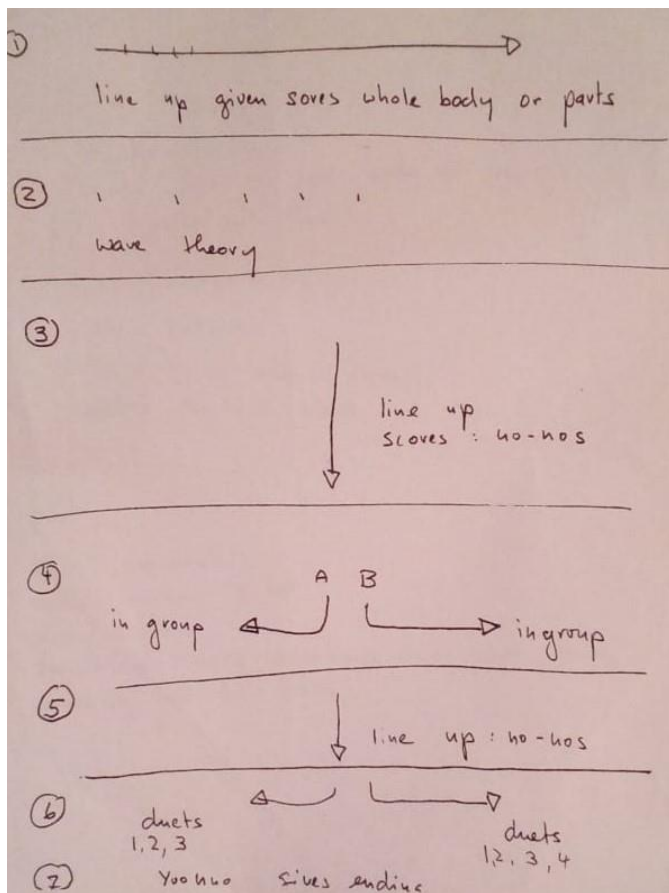 1
line up given scores whole body or parts
2
wave theory
3
line up
scores : no-nos
4 A B
in group in group
5
line up : no-nos
6
duets duets
1, 2, 3 1, 2, 3, 4
7 gives ending